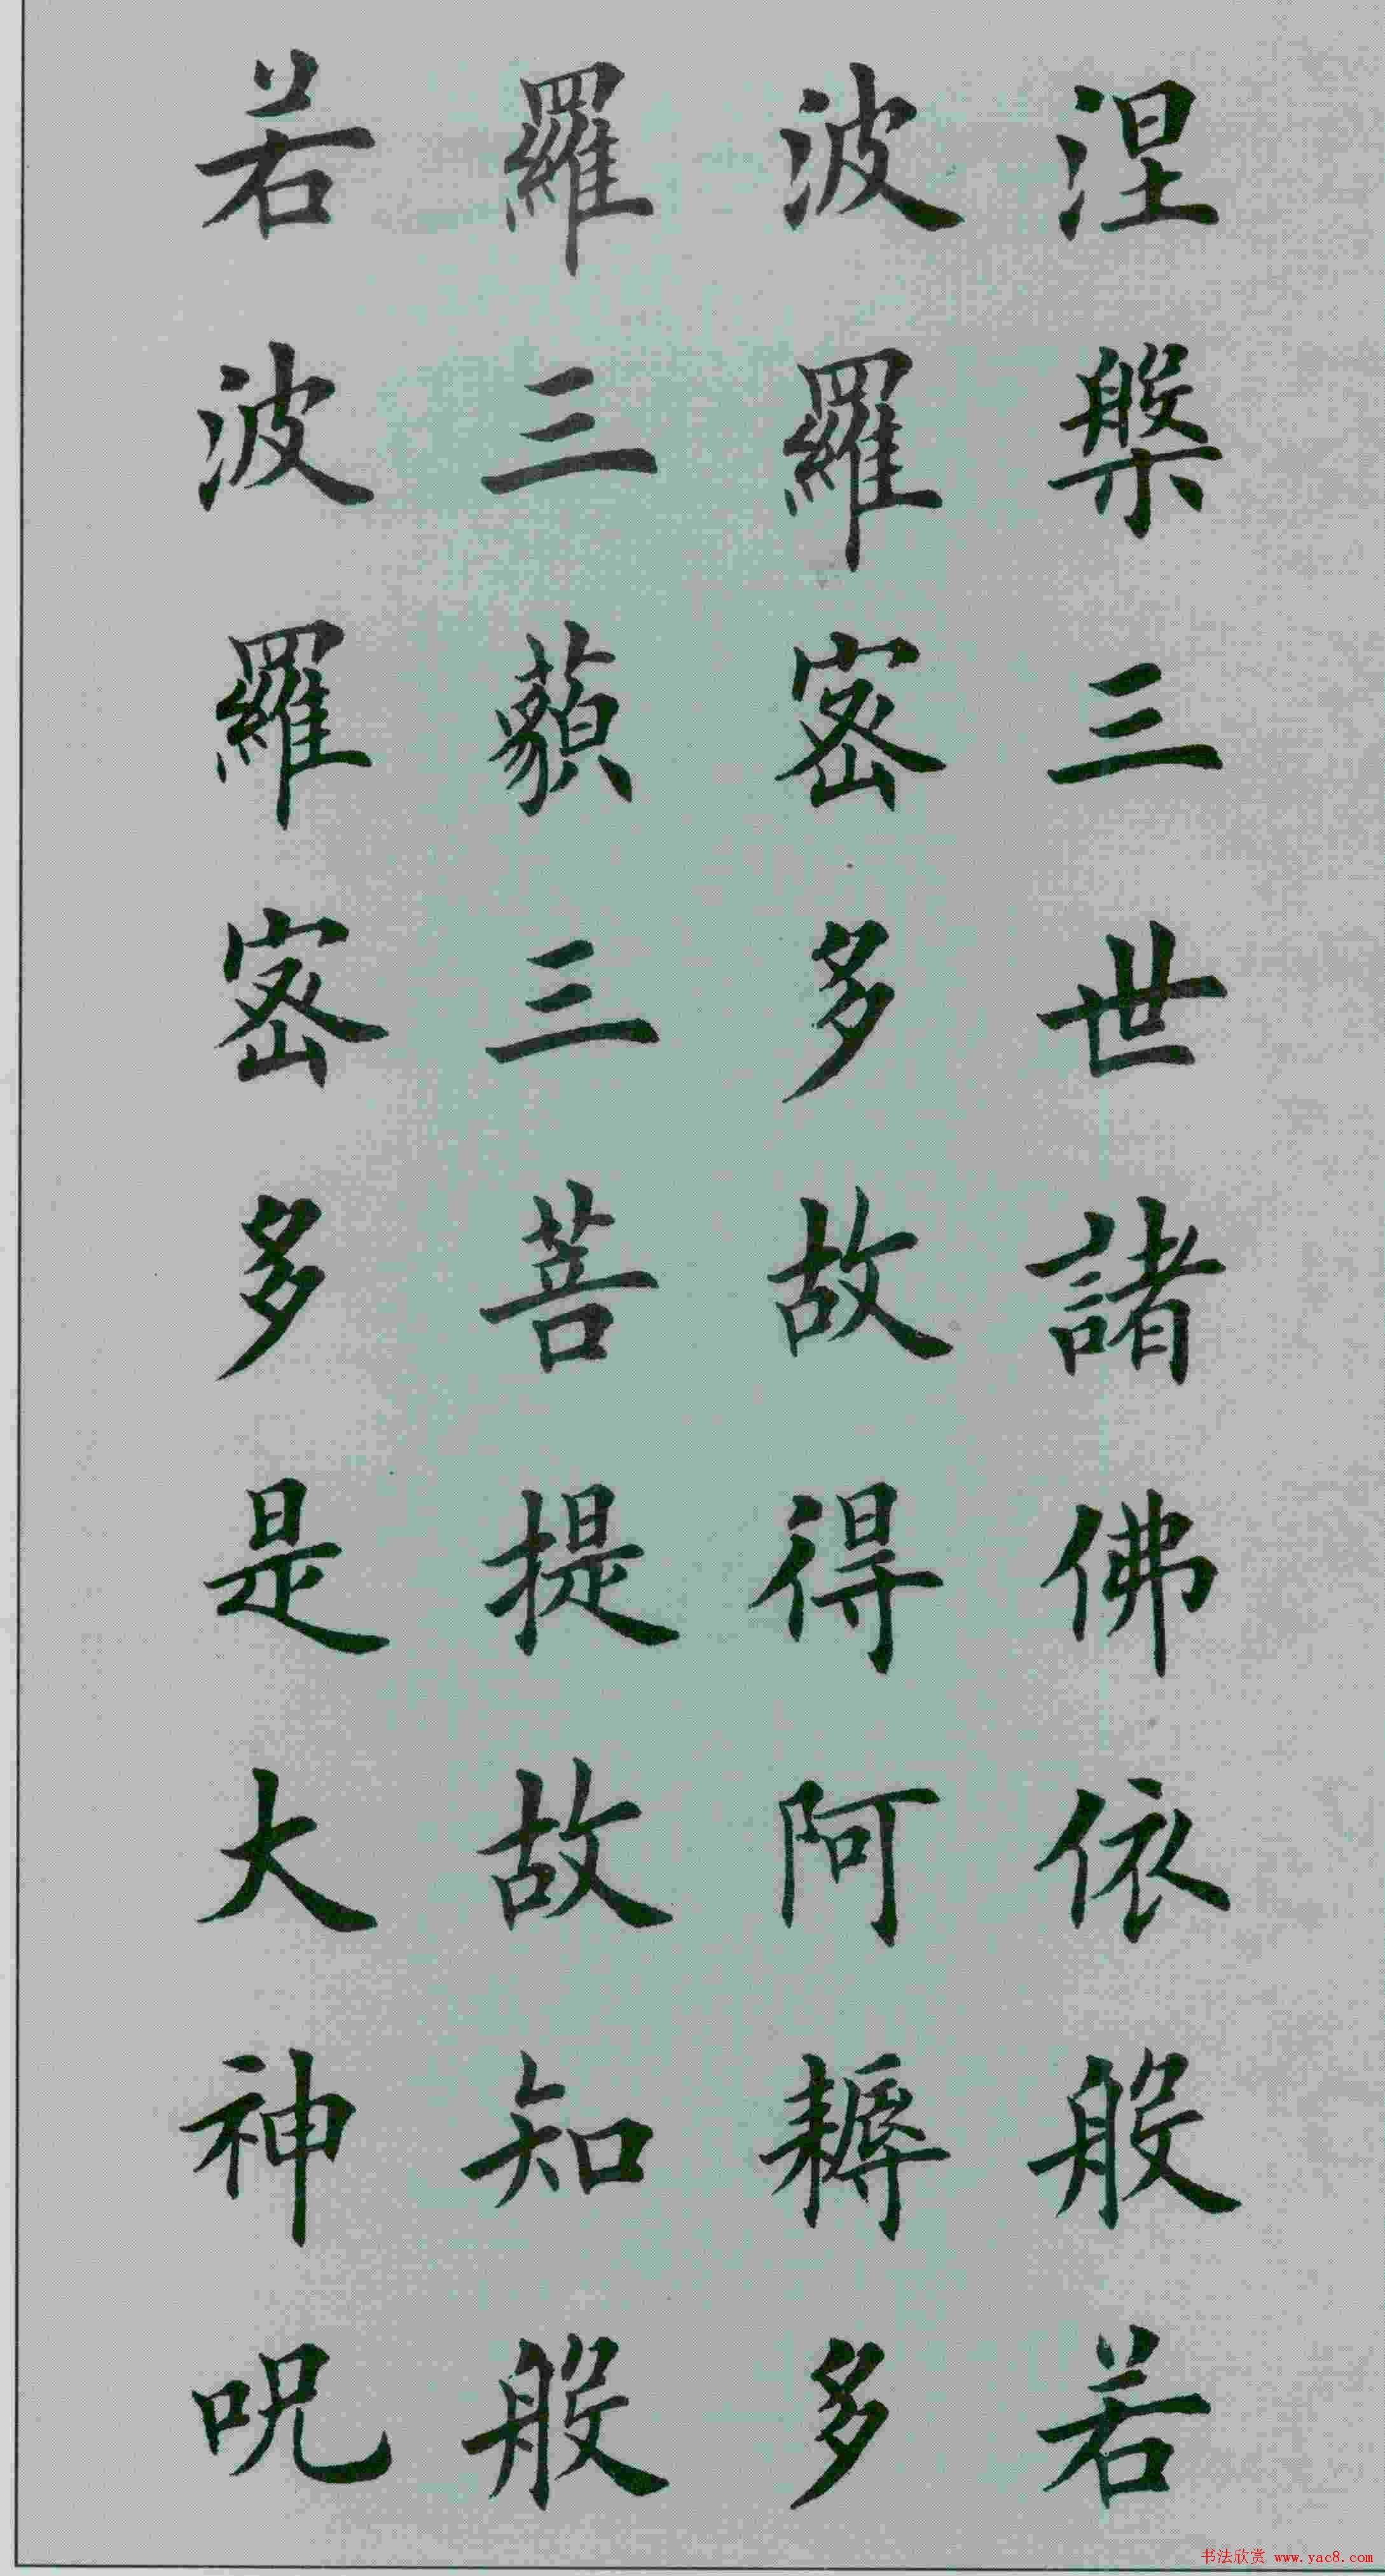 涅槃三世諸佛依般若
波羅密多故得阿耨多
羅三藐三菩提故知般
若波羅密多是大神呪
书法欣赏 www.yac8.com